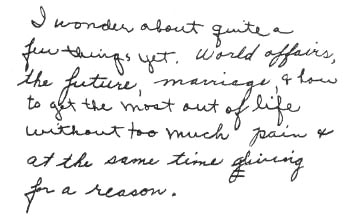 I wonder about quite a
few things yet. World affairs,
the future, marriage, & how
to get the most out of life
without too much pain &
at the same time giving
for a reason.